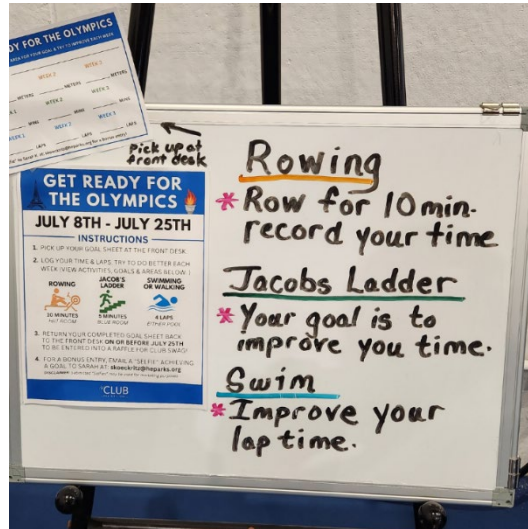 DY FOR THE OLYMPICS
WEEK 2
METERS
WEEK 3
METERS
WEEK 2
MINS
WEEK 3
MINS
WEEK 1
MINS
WEEK 2
LAPS
WEEK 3
LAPS
LAPS
Pick up at
front desk
GET READY FOR
THE OLYMPICS
JULY 8TH - JULY 25TH
INSTRUCTIONS
1. PICK UP YOUR GOAL SHEET AT THE FRONT DESK.
2. LOG YOUR TIME & LAPS. TRY TO DO BETTER EACH
WEEK (VIEW ACTIVITIES, GOALS & AREAS BELOW.)
ROWING
10 MINUTES
JACOB'S
LADDER
5 MINUTES
BLUE ROOM
SWIMMING
OR WALKING
4 LAPS
EITHER POOL
3. RETURN YOUR COMPLETED GOAL SHEET BACK
TO THE FRONT DESK ON OR BEFORE JULY 25TH
TO BE ENTERED INTO A RAFFLE FOR CLUB SWAG!
4. FOR A BONUS ENTRY, EMAIL A "SELFIE" ACHIEVING
A GOAL TO SARAH AT:
THE CLUB
Rowing
* Row for 10 min.
record your time
Jacobs Ladder
* Your goal is to
improve you time.
Swim
* Improve your
lap time.